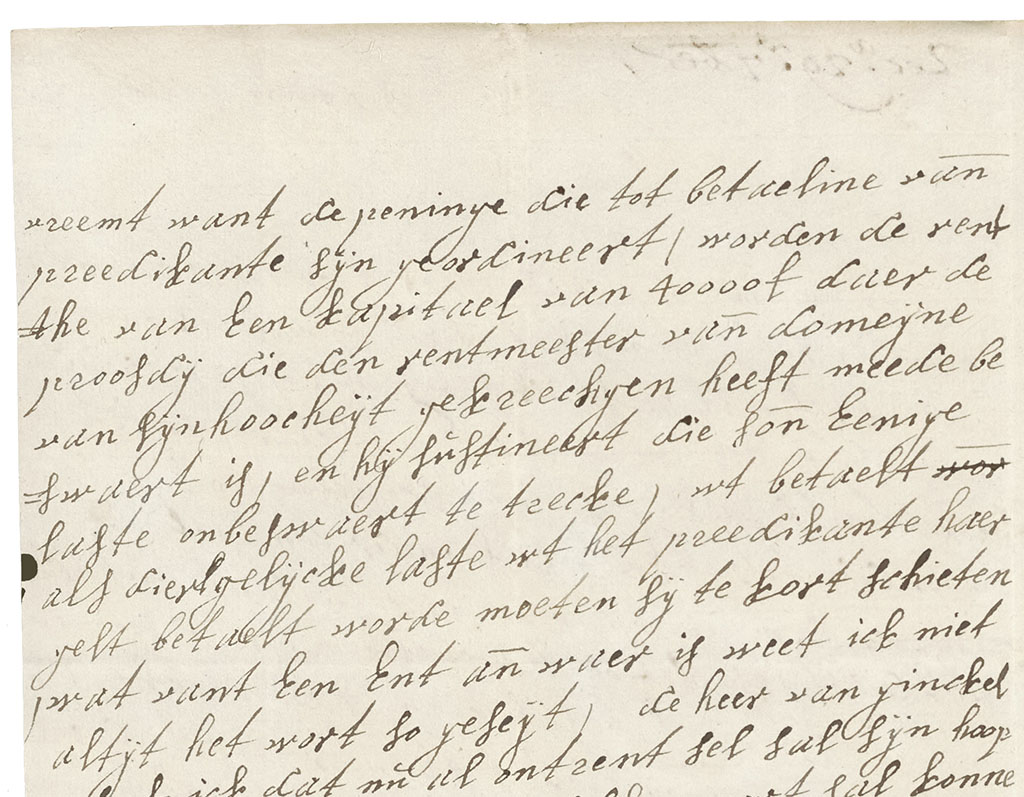 vreemt want de peninge die tot betaeline van̅
preedikante sijn geordineert, worden de rent
the van Een kapitael van 40000f daer de
proosdij die den rentmeester van̅ domeijne
van sijnhoocheijt gekreechgen heeft meede be
swaert is, en hij sustineert die son̅ Eenige
laste onbeswaert te trecke, wt betaelt wor
als dierlgelijcke laste wt het preedikante haer
gelt betaelt worde moeten sij te kort schieten
wat vant Een Ent an̅ waer is weet ick niet
altijt het wort so geseijt, de heer van ginckel
ick dat nu al ontrent sel sal sijn hoop
sal konne